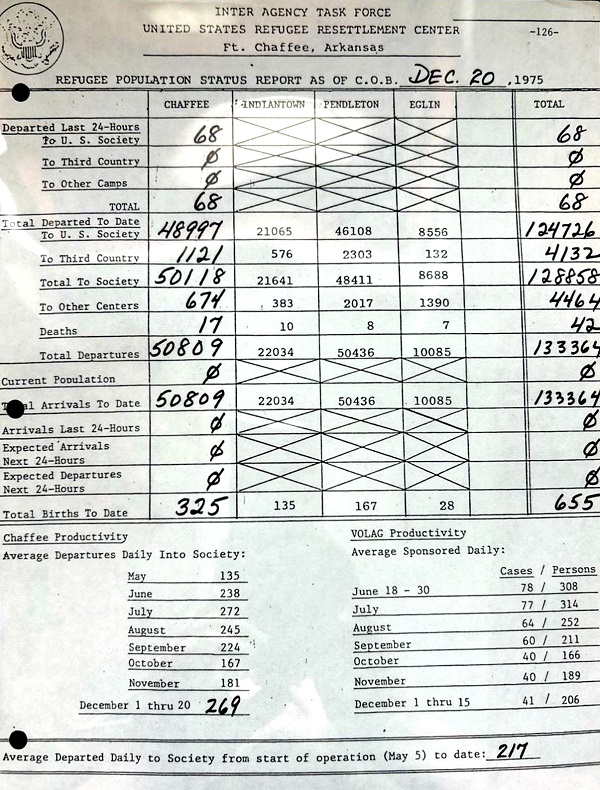 INTER AGENCY TASK FORCE
UNITED STATES REFUGEE RESETTLEMENT CENTER -126-
Ft. Chaffee, Arkansas
REFUGEE POPULATION STATUS REPORT AS OF C.O.B. DEC. 20 ,1975
CHAFFEE INDIANTOWN PENDLETON EGLIN TOTAL
Departed Last 24-Hours
To U. S. Society 68 68
To Third Country 0 0
To Other Camps 0 0
TOTAL 68 68
Total Departed To Date
To U. S. Society 48997 21065 46108 8556 124726
To Third Country 1121 576 2303 132 4132
Total To Society 50118 21641 48411 8688 128858
To Other Centers 674 383 2017 1390 4464
Deaths 17 10 8 7 42
Total Departures 50809 22034 50436 10085 133364
Current Population 0 0
Total Arrivals To Date 50809 22034 50436 10085 133364
Arrivals Last 24-Hours 0 0
Expected Arrivals
Next 24-Hours 0 0
Expected Departures
Next 24-Hours 0 0
Total Births To Date 325 135 167 28 655
Chaffee Productivity
Average Departures Daily Into Society:
May 135
June 238
July 272
August 245
September 224
October 167
November 181
December 1 thru 20 269
VOLAG Productivity
Average Sponsored Daily:
Cases / Persons
June 18 - 30 78 / 308
July 77 / 314
August 64 / 252
September 60 / 211
October 40 / 166
November 40 / 189
December 1 thru 15 41 / 206
Average Departed Daily to Society from start of operation (May 5) to date: 217